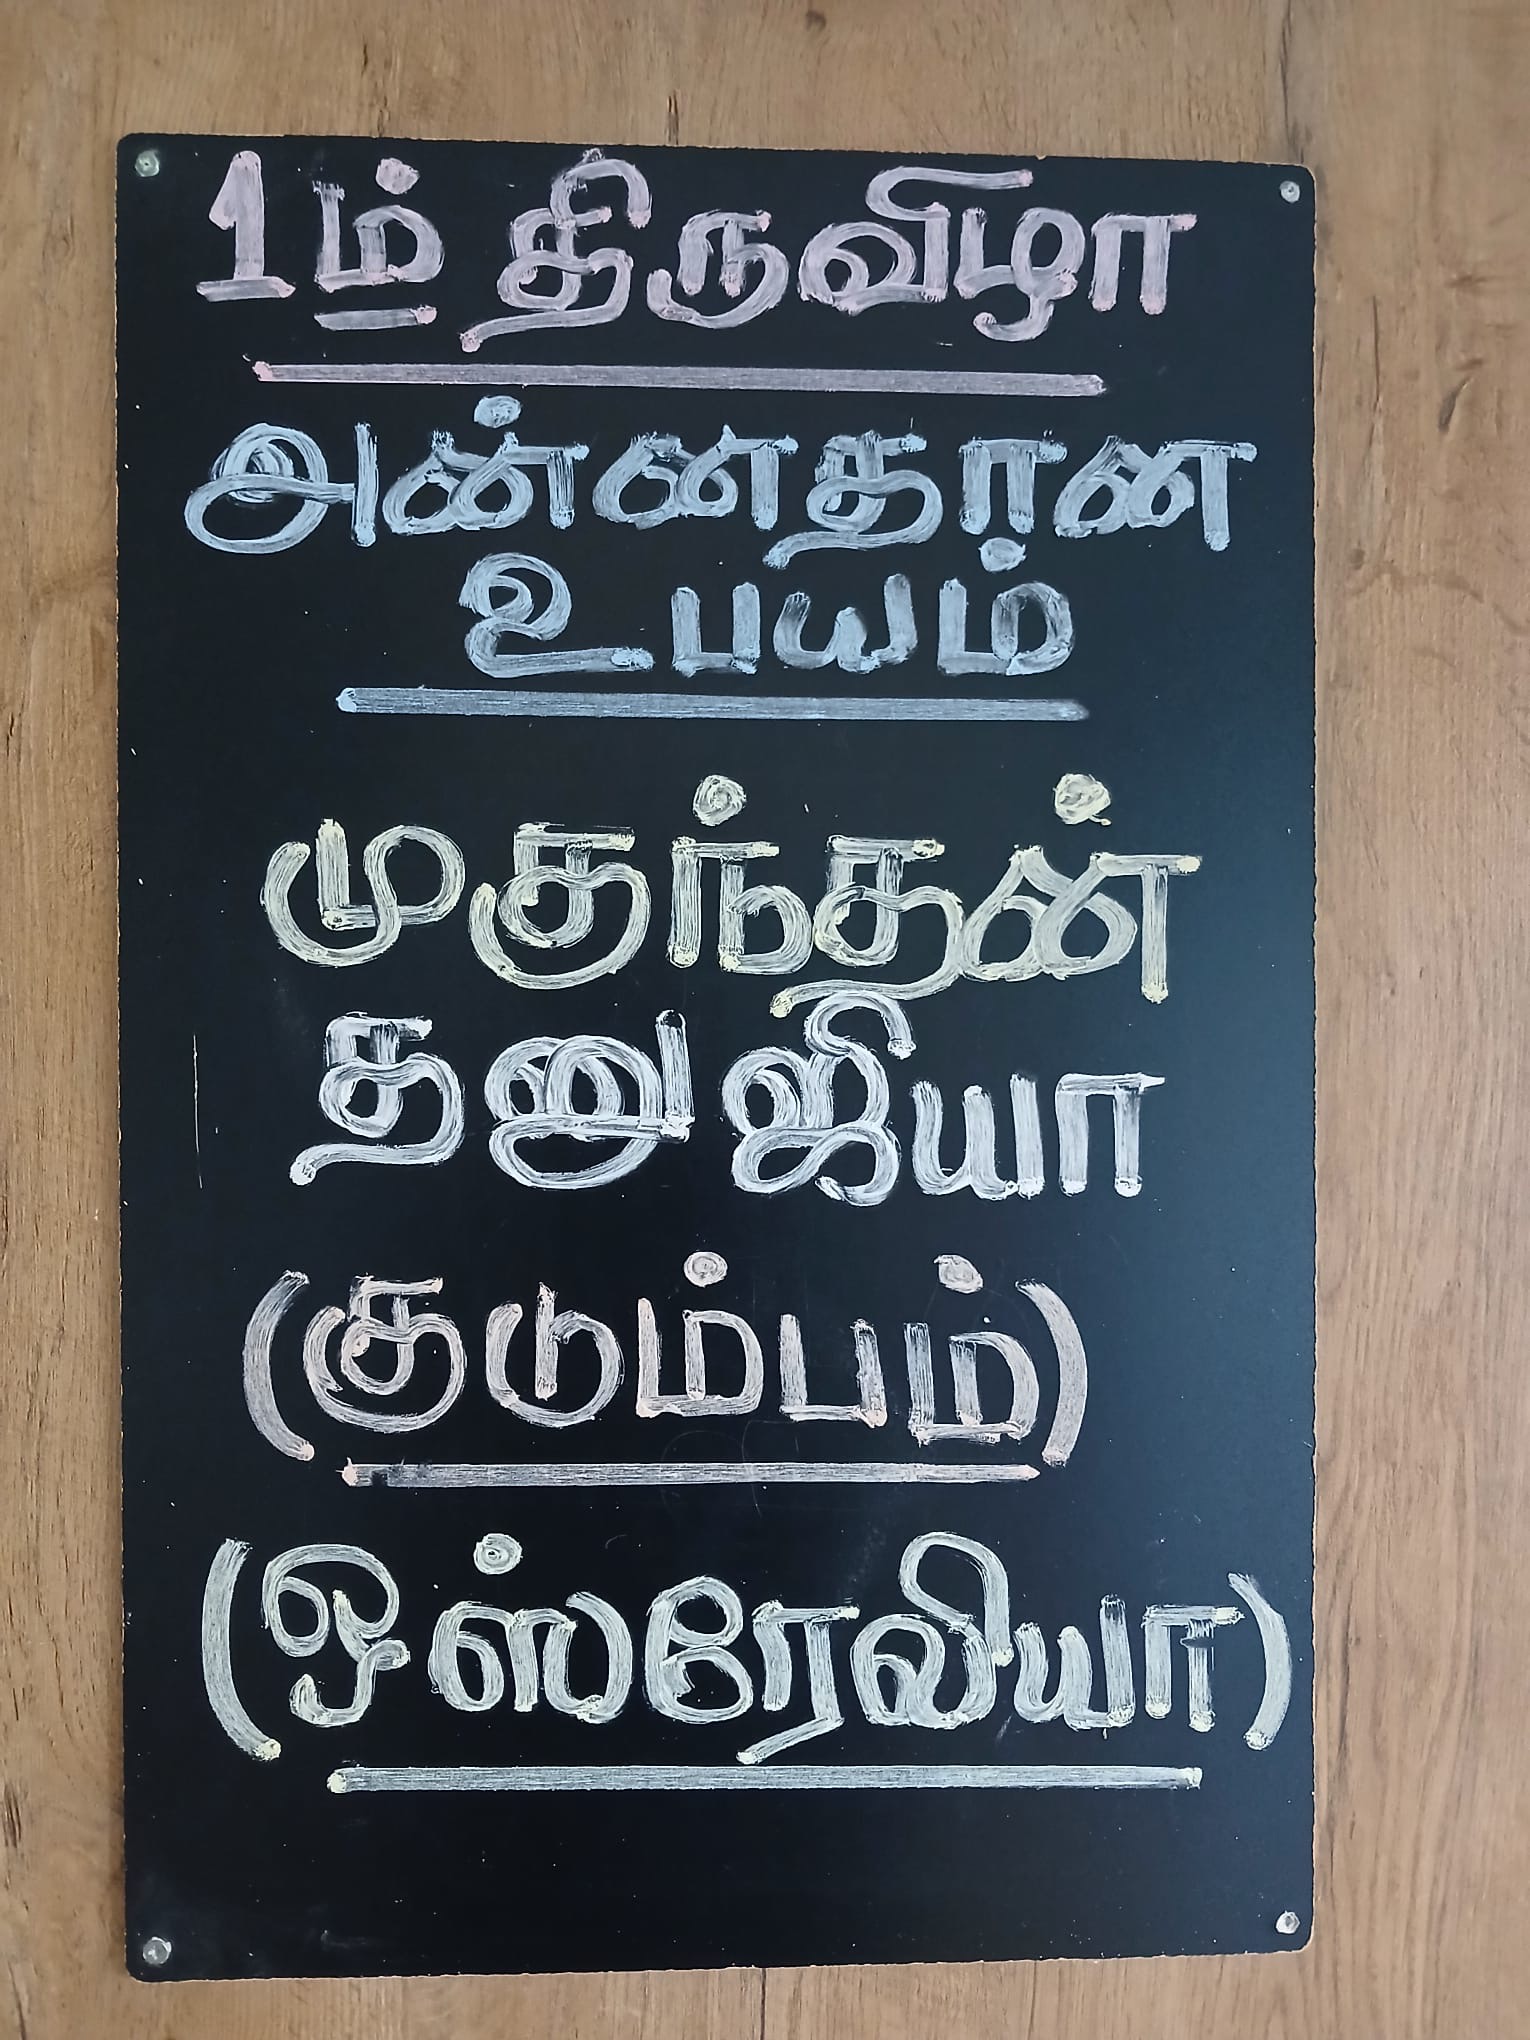 1ம் திருவிழா
அன்னதான
உபயம்
முகுந்தன்
தனுஜியா
(குடும்பம்)
(ஒஸ்ரேலியா)